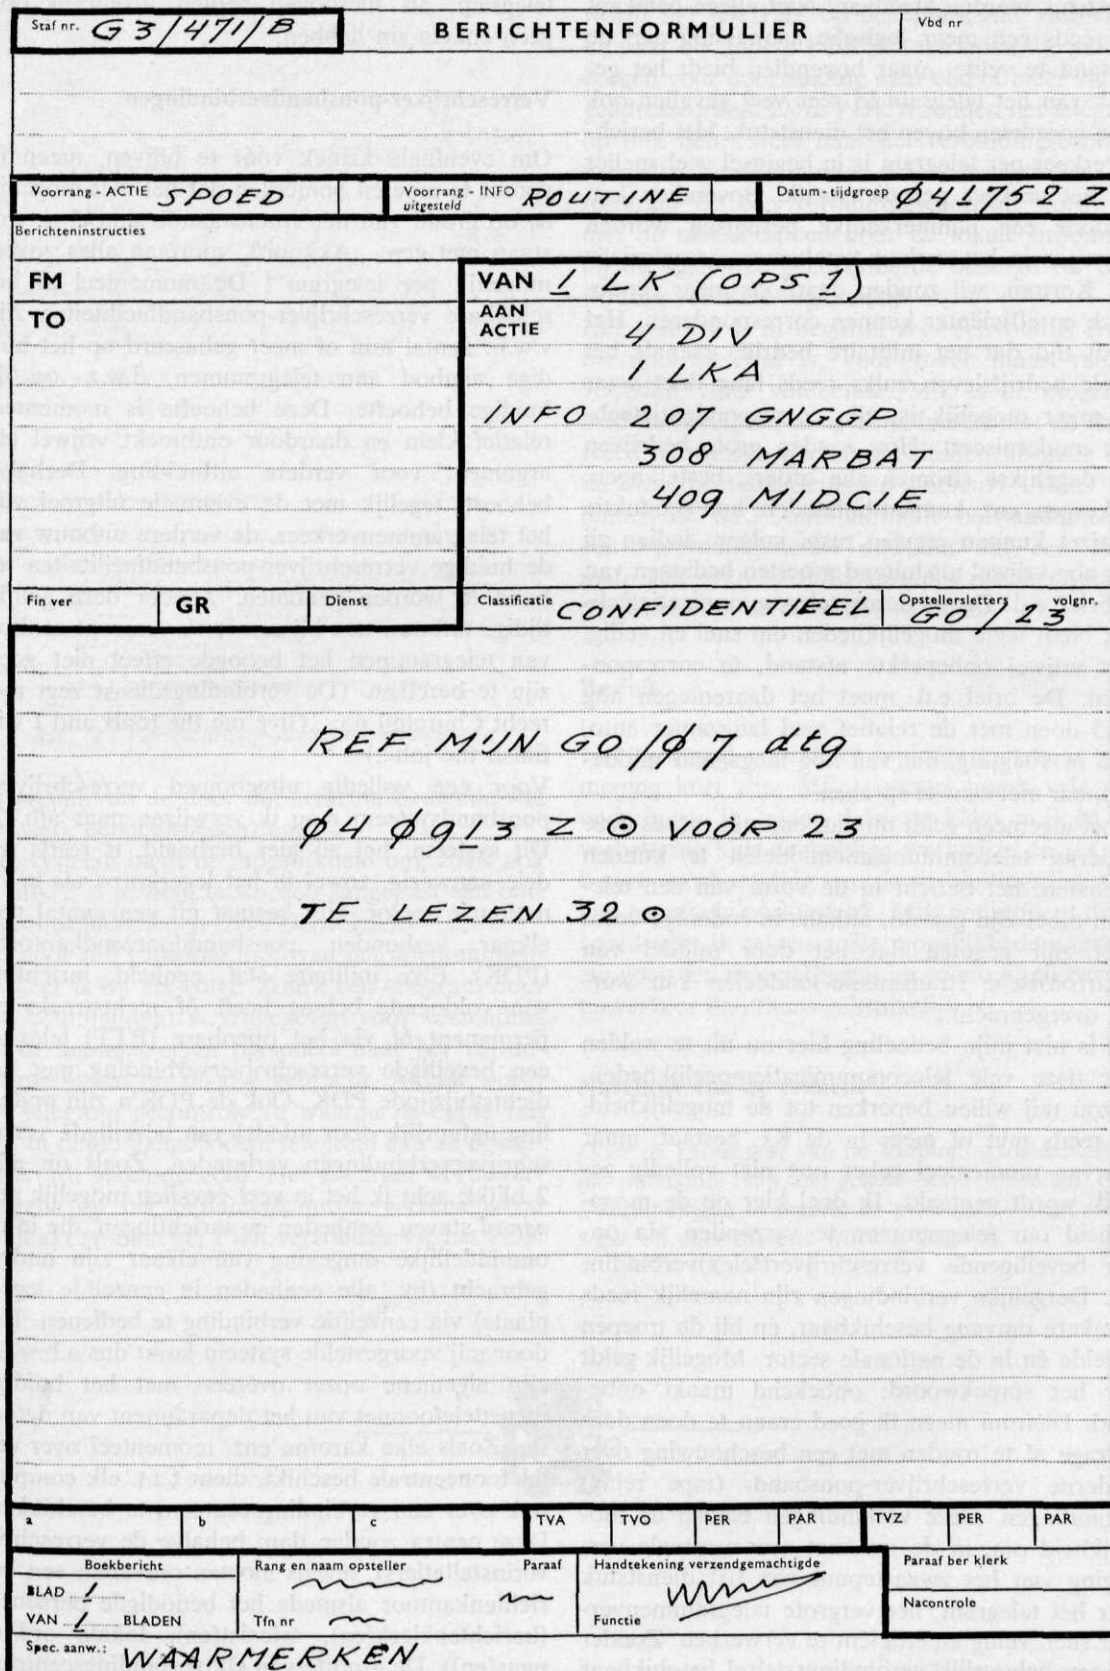 Staf nr. G3/471/B BERICHTENFORMULIER Vbd nr
Voorrang - ACTIE SPOED Voorrang - INFO uitgesteld ROUTINE Datum-tijdgroep Ø41752 Z
Berichteninstructies
FM VAN 1 LK (OPS 1)
TO AAN ACTIE 4 DIV
1 LKA
INFO 207 GNGGP
308 MARBAT
409 MIDCIE
Fin ver GR Dienst Classificatie CONFIDENTIEEL Opstellersletters volgnr. GO/23
REF MIJN GO/Ø7 dtg
Ø4Ø913 Z ⊙ VOOR 23
TE LEZEN 32 ⊙
a b c TVA TVO PER PAR TVZ PER PAR
Boekbericht Rang en naam opsteller Paraaf Handtekening verzendgemachtigde Paraaf ber klerk
BLAD 1 Nacontrole
VAN 1 BLADEN Tfn nr Functie
Spec. aanw.: WAARMERKEN